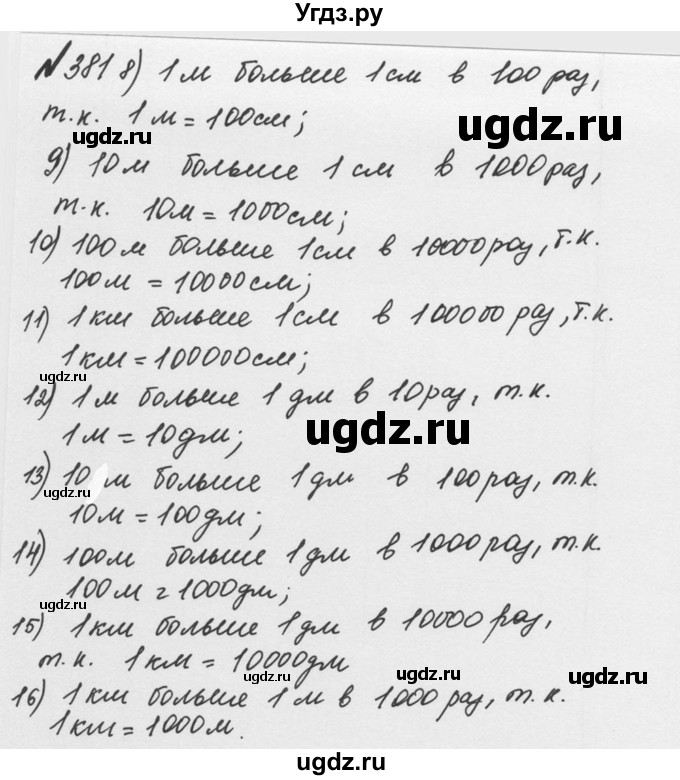 Угдз.ру
№381 8) 1 м больше 1 см в 100 раз,
т.к. 1 м = 100см;
ugdz.ru
ugdz.ru
9) 10 м больше 1 см в 1000 раз,
т.к. 10м = 1000см;
10) 100 м больше 1см в 10000 раз, т.к.
100м = 10000см;
11) 1 км больше 1 см в 100000 раз, т.к.
ugdz.ru
1 км = 100000см;
ugdz.ru
12) 1 м больше 1 дм в 10 раз, т.к.
ugdz.ru
1м = 10дм;
13) 10 м больше 1 дм в 100 раз, т.к.
ugdz.ru
10м = 100дм;
14) 100м больше 1 дм в 1000 раз, т.к.
100м = 1000дм;
ugdz.ru
15) 1 км больше 1 дм в 10000 раз,
т.к. 1 км = 10000дм
ugdz.ru
ugdz.ru
16) 1 км больше 1 м в 1000 раз, т.к.
ugdz.ru
1 км = 1000 м.
ugdz.ru